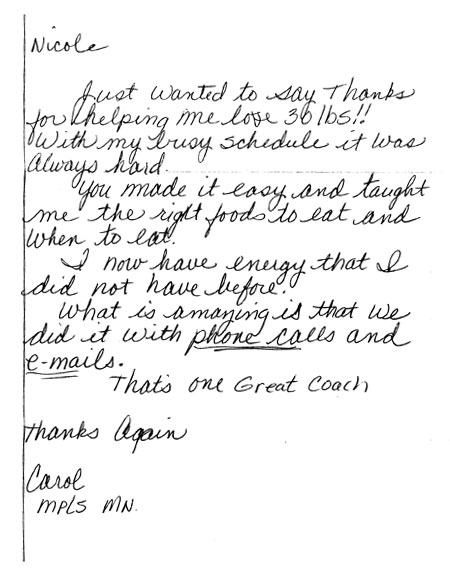 Nicole
Just wanted to say Thanks
for helping me lose 30 lbs!!
With my busy schedule it was
always hard.
You made it easy and taught
me the right foods to eat and
when to eat.
I now have energy that I
did not have before.
What is amazing is that we
did it with phone calls and
e-mails.
That's one Great Coach
Thanks Again
Carol
MPLS MN.